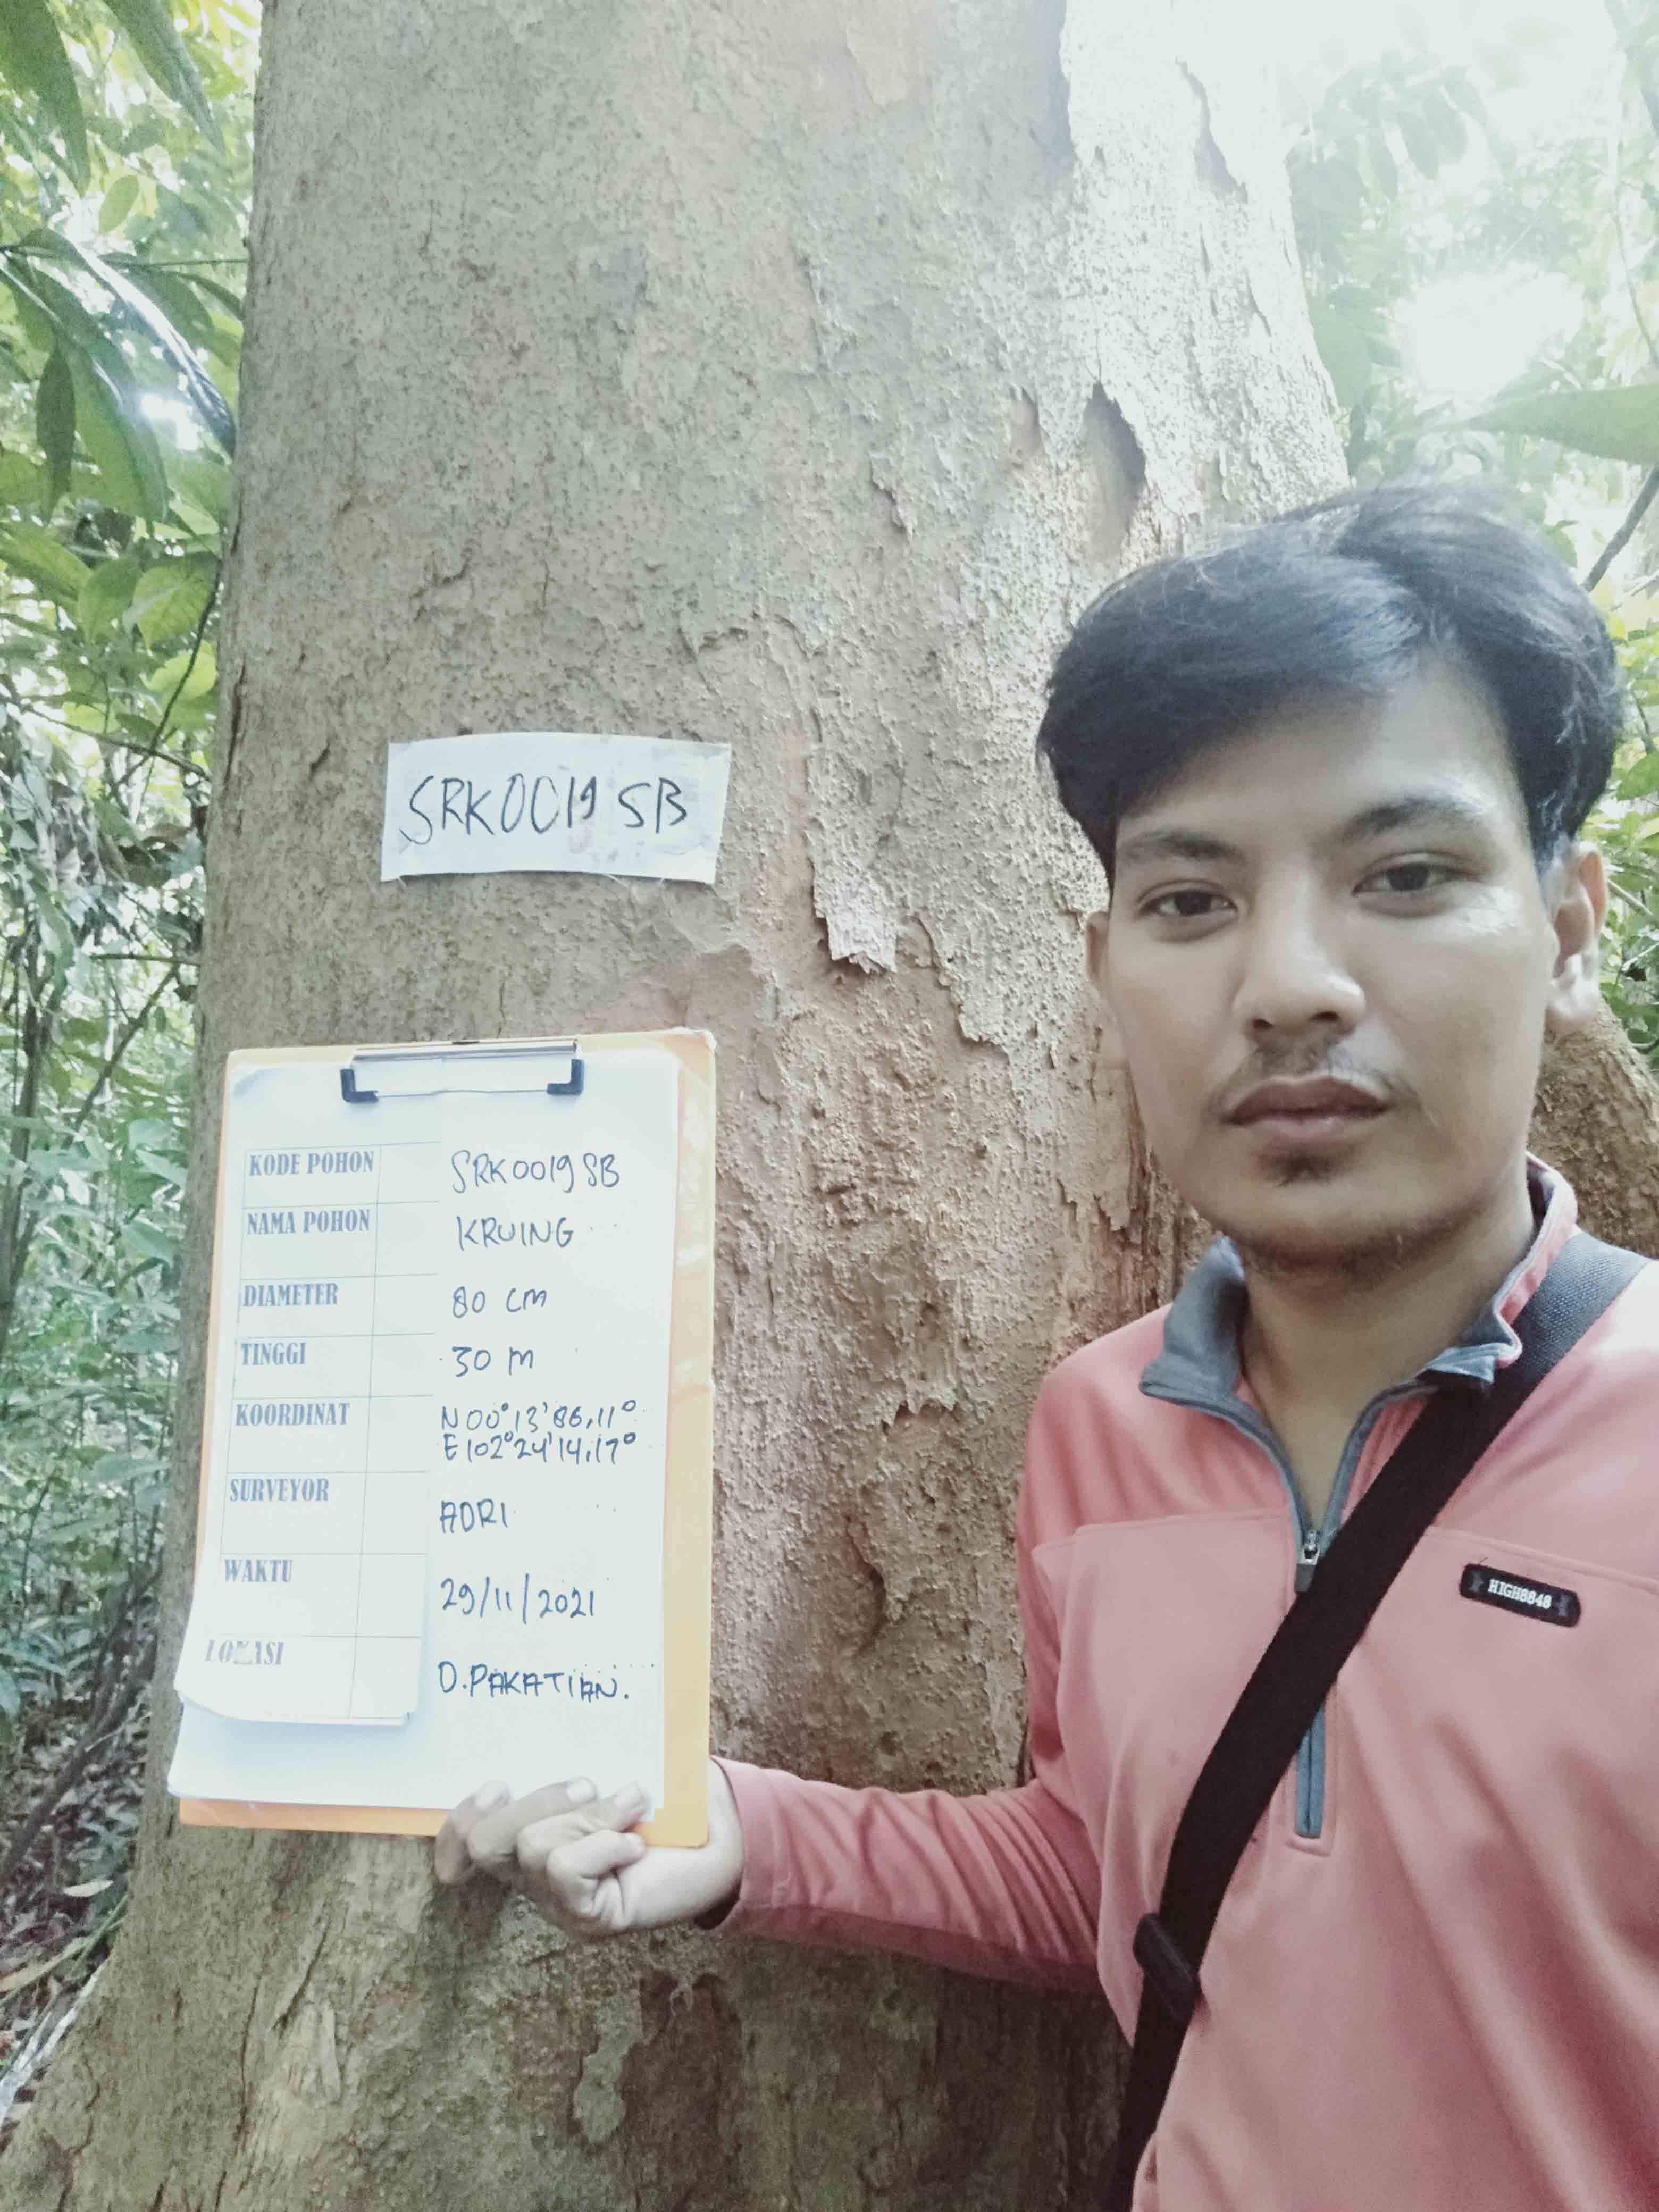 SRK0019 SB
KODE POHON SRK0019SB
NAMA POHON KRUING
DIAMETER 80 CM
TINGGI 30 M
KOORDINAT N00°13'86,11°
E102°24'14,17°
SURVEYOR ADRI
WAKTU 29/11/2021
LOKASI D.PAKATIAN.
HIGH8848